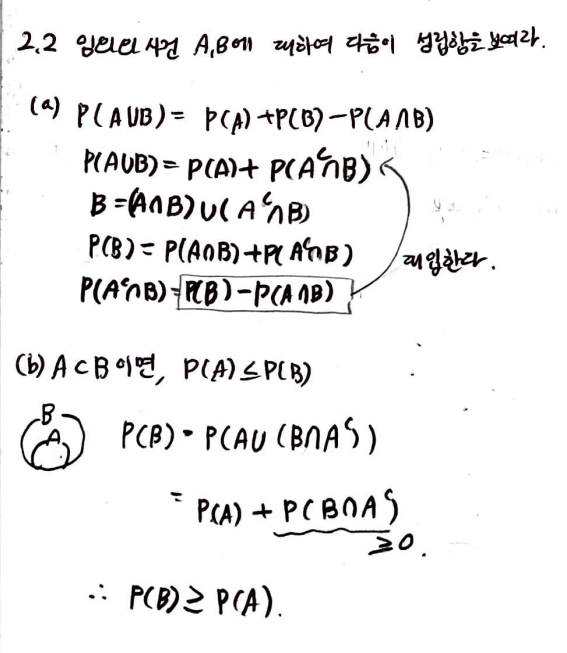 2.2 임의의 사건 A,B에 대하여 다음이 성립함을 보여라.
(a) P(A∪B) = P(A)+P(B)-P(A∩B)
P(A∪B) = P(A)+ P(Aᶜ∩B)
B = (A∩B)∪(Aᶜ∩B)
P(B) = P(A∩B)+P(Aᶜ∩B)
대입한다.
P(Aᶜ∩B)=P(B)-P(A∩B)
(b) A⊂B이면, P(A)≤P(B)
B
A
P(B) = P(A∪(B∩Aᶜ)
= P(A) + P(B∩Aᶜ)
≥0.
∴ P(B)≥P(A).